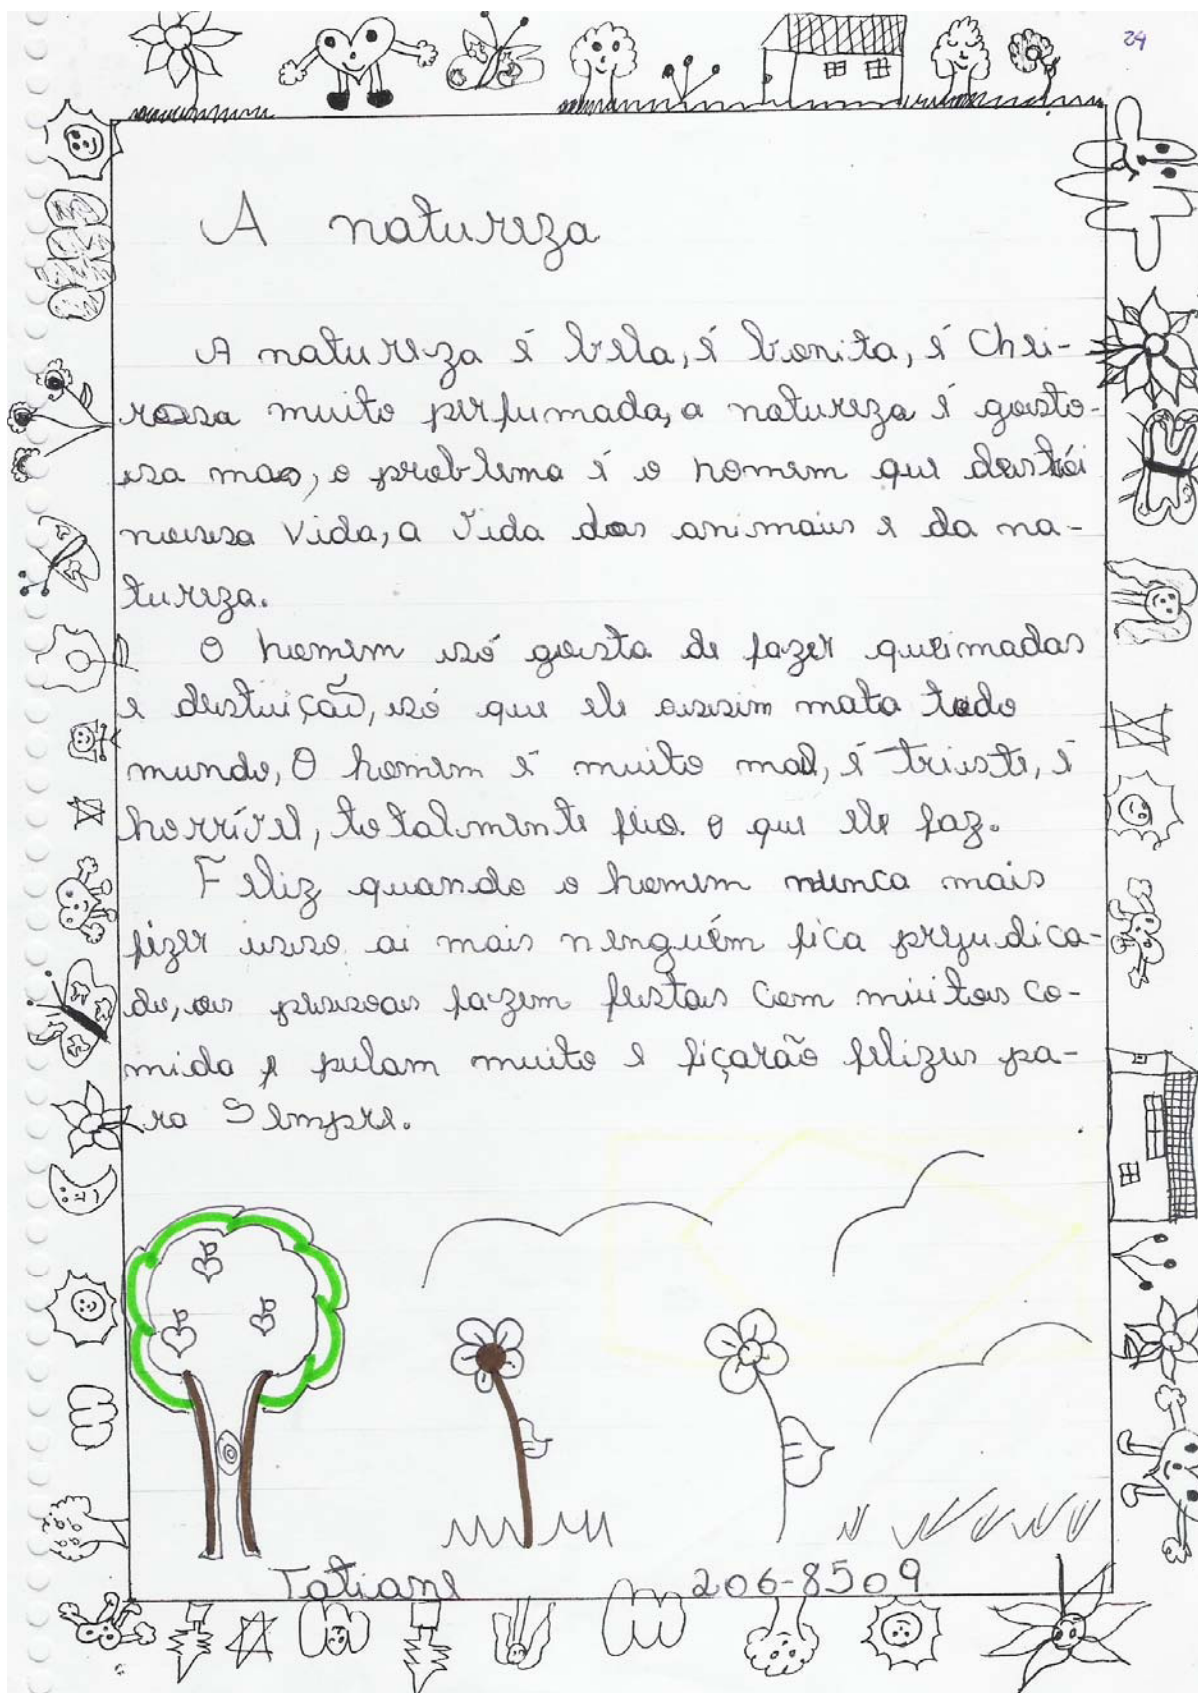 24
A natureza
A natureza é bela, é bonita, é Chei-
rosa muito perfumada, a natureza é gosto-
sa mas, o problema é o homem que destrói
nossa vida, a vida dos animais e da na-
tureza.
O homem só gosta de fazer queimadas
e destuição, só que ele assim mata todo
mundo, O homem é muito mal, é triste, é
horrível, totalmente feio o que ele faz.
Feliz quando o homem nunca mais
fizer isso ai mais nenguém fica prejudica-
do, as pessoas fazem festas com muitas co-
mida e pulam muito e ficarão felizes pa-
ra Sempre.
Tatiane 206-8509